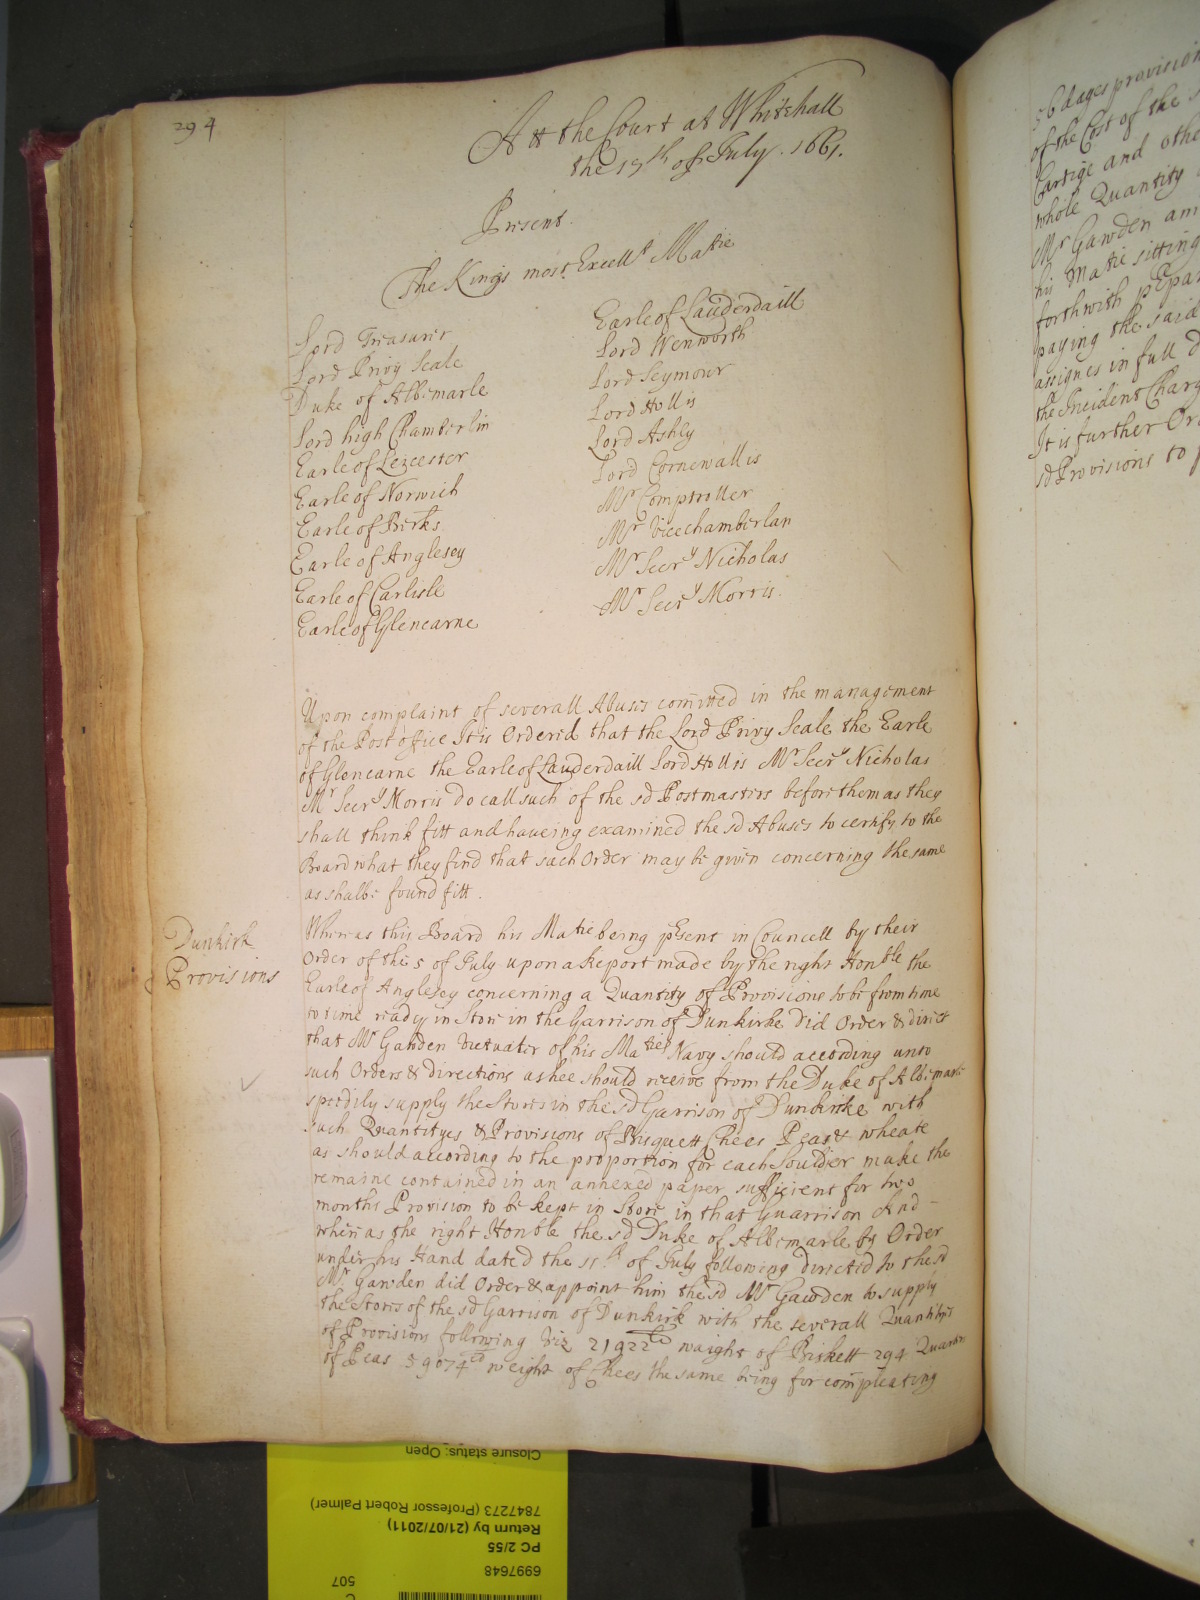 294
Att the Court at Whitehall
the 17th of July. 1661.
Present.
The Kings most Excellt Matie
Lord Treasurer
Lord Privy Seale
Duke of Albemarle
Lord high Chamberlin
Earle of Leicester
Earle of Norwich
Earle of Berks
Earle of Anglesey
Earle of Carlisle
Earle of Glencarne
Earle of Lauderdaill
Lord Wenworth
Lord Seymour
Lord Hollis
Lord Ashly
Lord Cornewallis
Mr Comptroller
Mr Vicechamberlan
Mr Secry Nicholas
Mr Secry Morris.
Upon complaint of severall Abuses comitted in the management
of the Post office It is Ordered that the Lord Privy Seale the Earle
of Glencarne the Earle of Lauderdaill Lord Hollis Mr Secry Nicholas
Mr Secry Morris do call such of the sd Postmasters before them as they
shall think fitt and haveing examined the sd Abuses to certify to the
Board what they find that such Order may be given concerning the same
as shalbe found fitt.
Dunkirk
Provisions
Whereas this Board his Matie being psent in Councell by their
Order of the 5 of July upon a Report made by the right Honble the
Earle of Anglesey concerning a Quantity of Provisions to be from time
to time ready in Store in the Garrison of Dunkirke did Order & direct
that Mr Gauden Victualer of his Maties Navy should according unto
such Orders & directions as hee should receive from the Duke of Albemarle
speedily supply the Stores in the sd Garrison of Dunkirke with
such Quantityes & Provisions of Bisquett Chees Peas & wheate
as should according to the proportion for each Souldier make the
remaine contained in an annexed paper sufficient for two
months Provision to be kept in Store in that Guarrison And -
whereas the right Honble the sd Duke of Albemarle by Order
under his Hand dated the 11th of July following directed to the sd
Mr Gawden did Order & appoint him the sd Mr Gawden to supply
the Stores of the sd Garrison of Dunkirk with the severall Quantityes
of Provisions following viz 21922 waight of Biskett 294 Quarters
of Peas 39074 weight of Chees the same being for compleating
56 dayes provision
of the Cost of the
Cartige and othe
whole Quantity
Mr Gawden am
his Matie sitting
forthwith ppar
paying the said
assignes in full
the Incident Charg
It is further Or
sd Provisions to
Closure status: Open
7847273 (Professor Robert Palmer)
Return by (21/07/2011)
PC 2/55
6997648
507